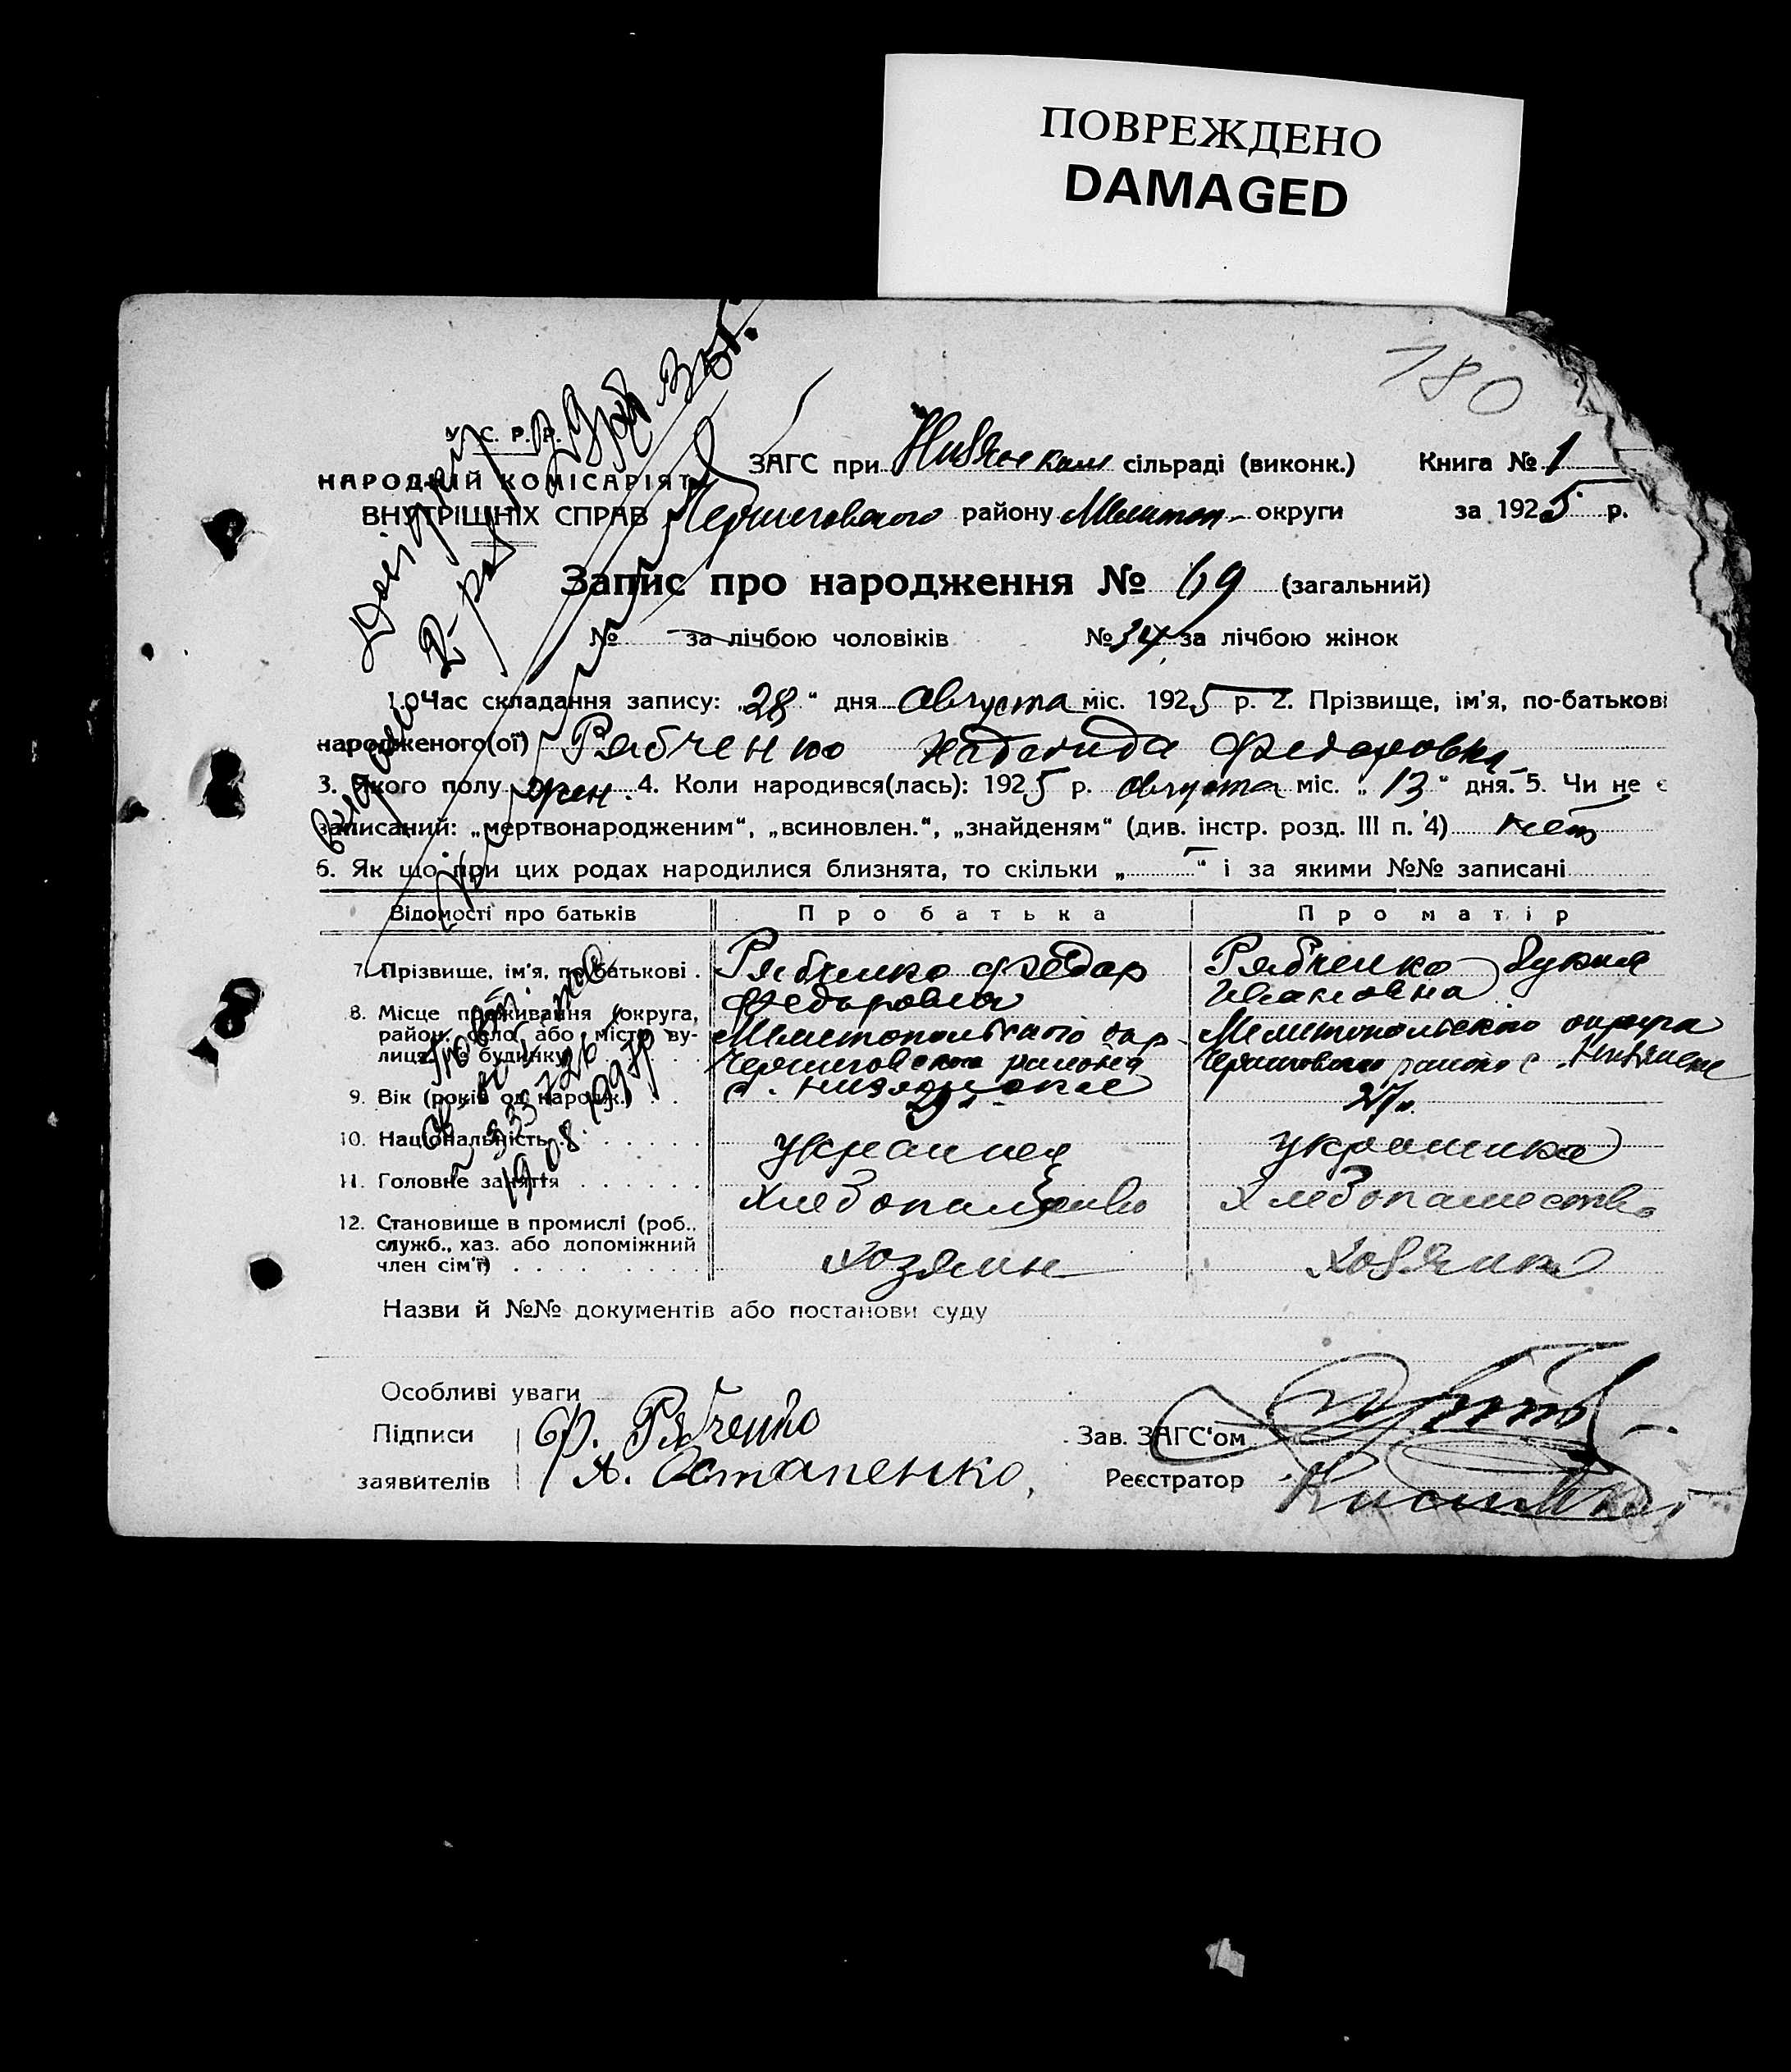 ПОВРЕЖДЕНО
DAMAGED
180
У. С. Р. Р.
НАРОДНІЙ КОМІСАРІЯТ
ВНУТРІШНІХ СПРАВ
ЗАГС при сільраді (виконк.) Книга № 1
Черниговского району Мелитоп- округи за 1925 р.
Запис про народження № 69 (загальний)
№ за лічбою чоловіків № 34 за лічбою жінок
1. Час складання запису: „28“ дня Августа міс. 1925 р. 2. Прізвище, ім'я, по-батькові
народженого(ої) Рябченко Надежда Федоровна
3. Якого полу жен. 4. Коли народився(лась): 1925 р. августа міс. „13“ дня. 5. Чи не є
записаний: „мертвонародженим“, „всиновлен.“, „знайденям“ (див. інстр. розд. III п. 4) нет
6. Як що при цих родах народилися близнята, то скільки „ “ і за якими №№ записані
Відомості про батьків Про батька Про матір
7. Прізвище, ім'я, по батькові . Рябченко Федор Рябченко
Ивановна
8. Місце проживання (округа, Мелитопольского окр. Мелитопольского округа
район, село, або місто ву- Черниговского района Черниговского района с.
лиця, № будинку)
9. Вік (років од народж.) . . 27
10. Національність . . . . . . украинец украинка
11. Головне заняття . . . . . . Хлебопашество Хлебопашество
12. Становище в промислі (роб.,
служб., хаз. або допоміжний
член сім'ї) . . . . . . . . . хозяин хозяйка
Назви й №№ документів або постанови суду
Особливі уваги
Підписи Ф. Рябченко Зав. ЗАГС'ом
заявителів А. Остапенко, Реєстратор